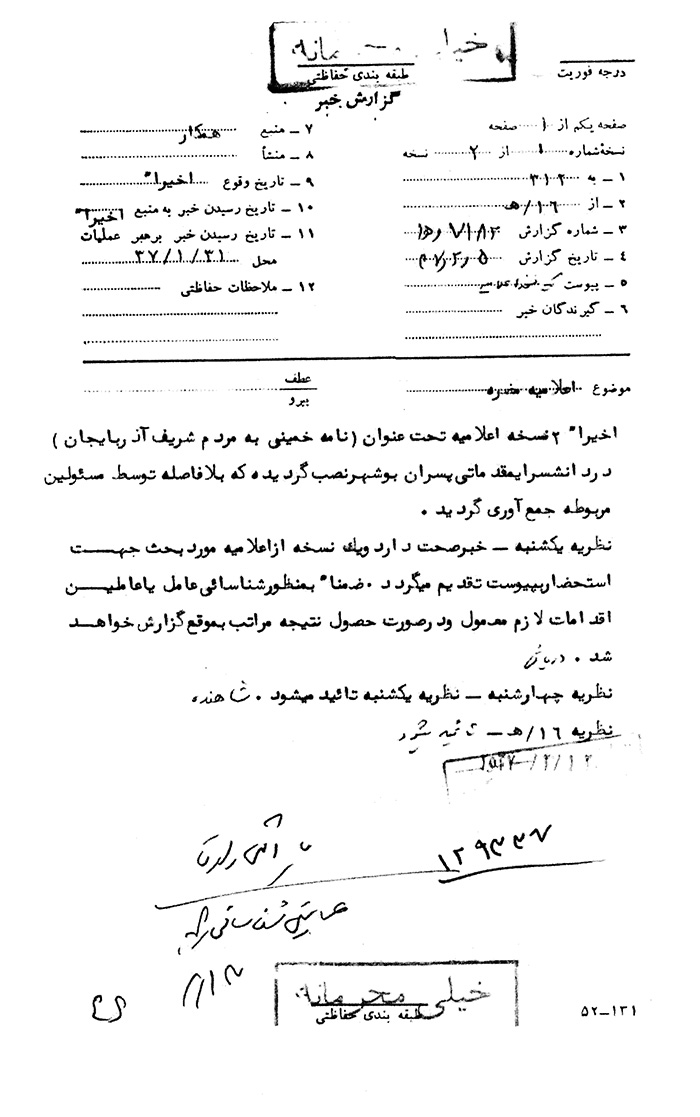 خیلی محرمانه
طبقه بندی حفاظتی
درجه فوریت
گزارش خبر
صفحه یکم از ۱ صفحه
نسخه شماره ۱ از ۲ نسخه
۱ ـ به ۳۱۲
۲ ـ از ۱۶/ه
۳ ـ شماره گزارش
۴ ـ تاریخ گزارش
۵ ـ پیوست
۶ ـ گیرندگان خبر
۷ ـ منبع همکار
۸ ـ منشأ
۹ ـ تاریخ وقوع اخیرا"
۱۰ ـ تاریخ رسیدن خبر به منبع اخیرا"
۱۱ ـ تاریخ رسیدن خبر برهبر عملیات
محل ۳۷/۱/۳۱
۱۲ ـ ملاحظات حفاظتی
موضوع اعلامیه مضره
عطف
پیرو
اخیرا" ۲ نسخه اعلامیه تحت عنوان (نامه خمینی به مردم شریف آذربایجان)
دردانشسرایمقدماتی پسران بوشهر نصب گردیده که بلافاصله توسط مسئولین
مربوطه جمع آوری گردید .
نظریه یکشنبه ـ خبرصحت دارد ویك نسخه ازاعلامیه مورد بحث جهت
استحضار بپیوست تقدیم میگردد . ضمنا" بمنظورشناسائی عامل یاعاملین
اقدامات لازم معمول ودرصورت حصول نتیجه مراتب بموقع گزارش خواهد
شد .
نظریه چهارشنبه ـ نظریه یکشنبه تائید میشود . شاهنده
نظریه ۱۶/هـ ـ تائید میشود
۱۲۹۳۳۷
خیلی محرمانه
طبقه بندی حفاظتی
۵۲ـ۱۳۱